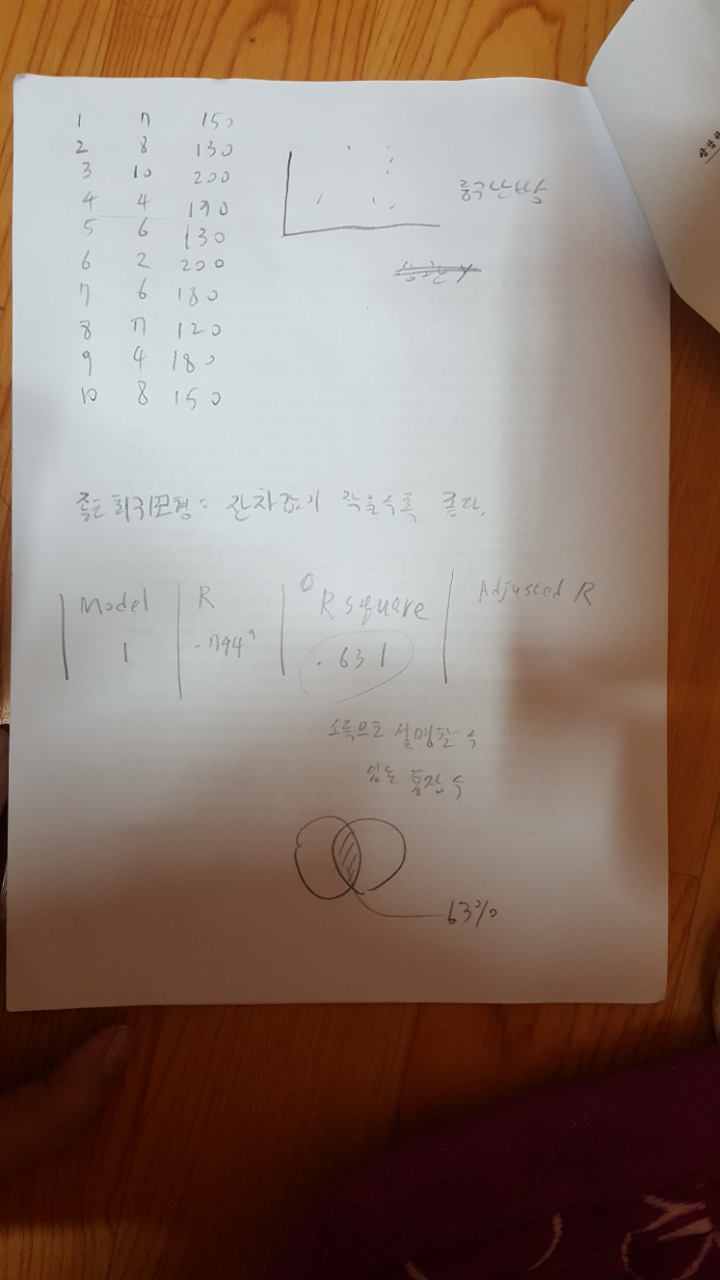 1 7 150
2 8 130
3 10 200
4 4 190
5 6 130
6 2 200
7 6 180
8 7 120
9 4 180
10 8 150
중구난방
좋은 회귀모형 = 잔차값이 작을수록 좋다.
Model R R square Adjusted R
1 .794ᵃ .631
소득으로 설명할 수
있는 통장 수
63%